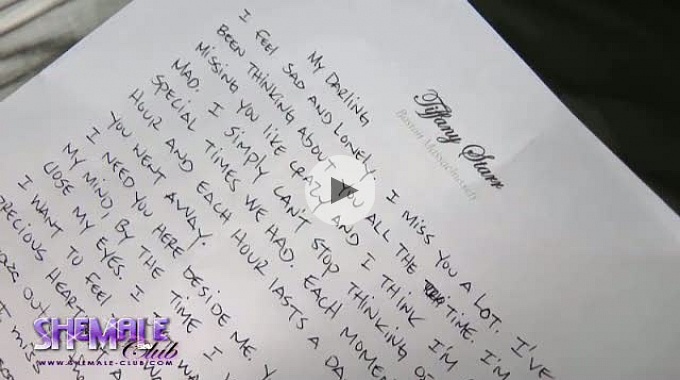 Tiffany Starr
Boston, Massachusetts
MY DARLING
I FEEL SAD AND LONELY. I MISS YOU A LOT. I'VE
BEEN THINKING ABOUT YOU ALL THE TIME. I'M
MISSING YOU LIKE CRAZY AND I THINK I'M
MAD. I SIMPLY CAN'T STOP THINKING OF
SPECIAL TIMES WE HAD. EACH MOMEN
HOUR AND EACH HOUR LASTS A DA
YOU WENT AWAY.
I NEED YOU HERE BESIDE ME. Y
MY MIND, BY THE TIME I
CLOSE MY EYES. I
I WANT TO FEEL
PRECIOUS HEART
OUT
MISS
SHEMALE
Club
WWW.SHEMALE-CLUB.COM